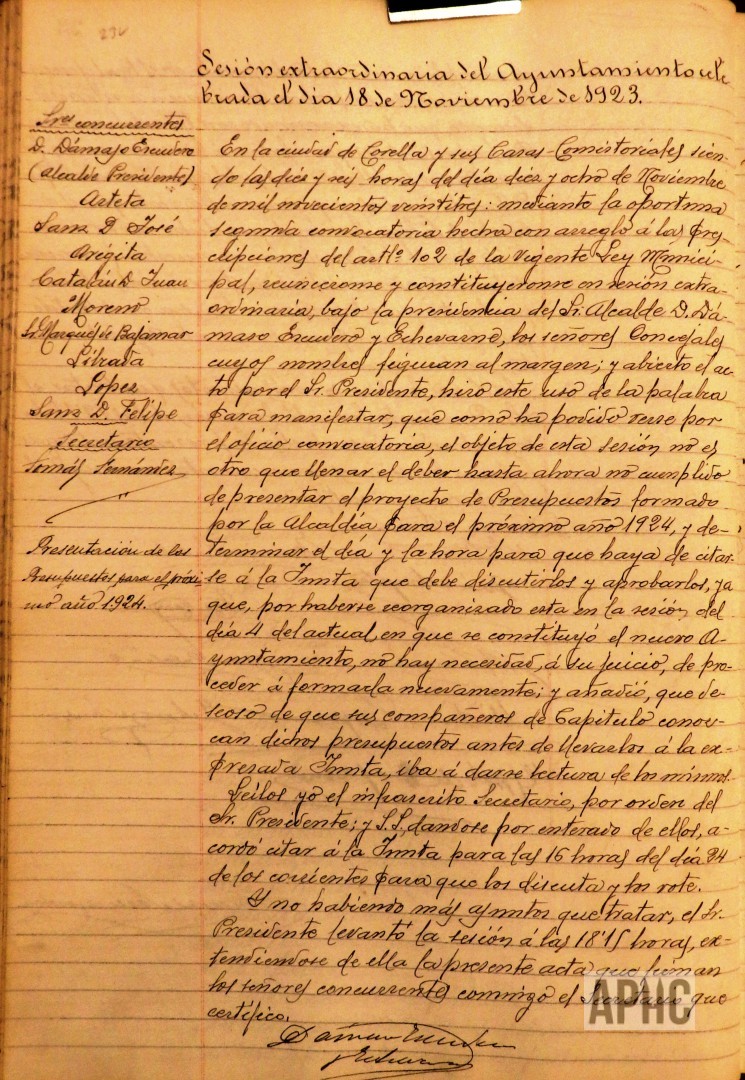 Sesión extraordinaria del Ayuntamiento cele
brada el día 18 de Noviembre de 1923.
Sres concurrentes
D. Dámaso Escudero
(Alcalde Presidente)
Arteta
Sanz D. José
Arigita
Catalán D. Juan
Moreno
Sr. Marqués de Bajamar
Librada
López
Sanz D. Felipe
Secretario
Tomás Fernández
Presentación de los
Presupuestos para el próxi
mo año 1924.
En la ciudad de Corella y sus Casas-Consistoriales sien-
do las diez y seis horas del día diez y ocho de Noviembre
de mil novecientos veintitres: mediante la oportuna
segunda convocatoria hecha con arreglo á las pres-
cripciones del artlº 102 de la vigente Ley Munici-
pal, reunieronse y constituyeronse en sesión extra-
ordinaria, bajo la presidencia del Sr. Alcalde D. Dá-
maso Escudero y Echevarne, los señores Concejales
cuyos nombres figuran al margen; y abierto el ac-
to por el Sr. Presidente, hizo este uso de la palabra
para manifestar, que como ha podido verse por
el oficio convocatoria, el objeto de esta sesión no es
otro que llenar el deber hasta ahora no cumplido
de presentar el proyecto de Presupuestos formado
por la Alcaldía para el próximo año 1924, y de-
terminar el día y la hora para que haya de citar-
se á la Junta que debe discutirlos y aprobarlos, ya
que, por haberse reorganizado esta en la sesión del
día 4 del actual, en que se constituyó el nuevo A-
yuntamiento, no hay necesidad, á su juicio, de pro-
ceder á formarla nuevamente; y añadió, que de-
seoso de que sus compañeros de Capitulo conoz-
can dichos presupuestos antes de llevarlos á la ex-
presada Junta, iba á darse lectura de los mismos.
Leilos yo el infrascrito Secretario, por orden del
Sr. Presidente; y S.S. dandose por enterado de ellos, a-
cordó citar á la Junta para las 16 horas del día 24
de los corrientes para que los discuta y los vote.
Y no habiendo más asuntos que tratar, el Sr.
Presidente levantó la sesión á las 18'15 horas, ex-
tendiendose de ella la presente acta que firman
los señores concurrentes conmigo el Secretario que
certifico.
Dámaso Escudero
APHC